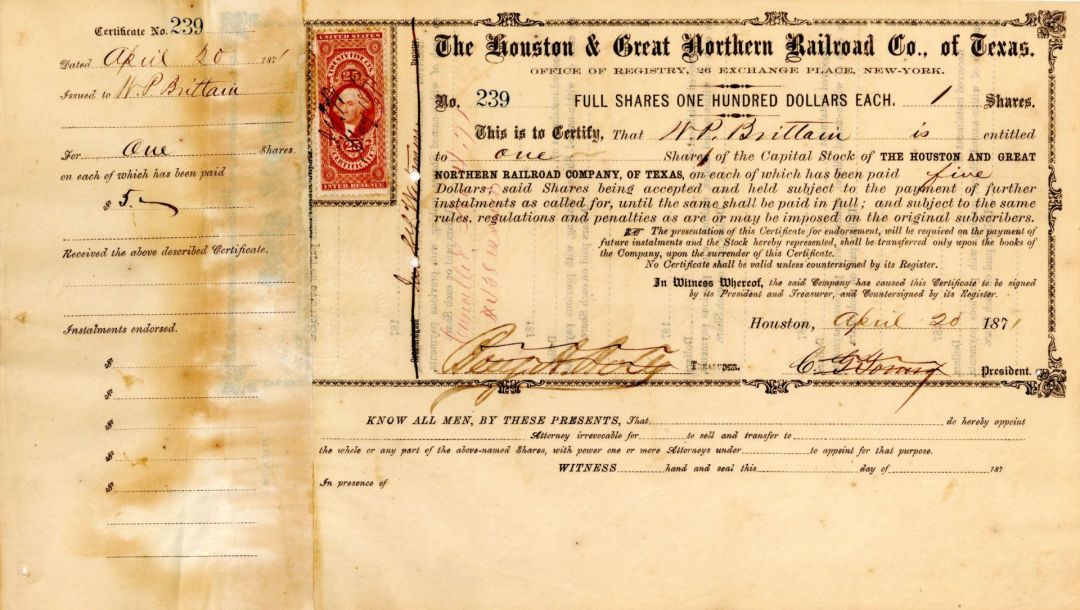 Certificate No. 239
Dated April 20 1871
Issued to W. P. Brittain
For One Shares
on each of which has been paid
$ 5.
Received the above described Certificate.
Instalments endorsed.
$
$
$
$
$
UNITED STATES
TWENTY FIVE CENTS
25
25
INTER REVENUE
The Houston & Great Northern Railroad Co., of Texas.
OFFICE OF REGISTRY, 26 EXCHANGE PLACE, NEW-YORK.
No. 239 FULL SHARES ONE HUNDRED DOLLARS EACH. 1 Shares.
This is to Certify, That W. P. Brittain is entitled
to one Shares of the Capital Stock of THE HOUSTON AND GREAT
NORTHERN RAILROAD COMPANY, OF TEXAS, on each of which has been paid five
Dollars; said Shares being accepted and held subject to the payment of further
instalments as called for, until the same shall be paid in full; and subject to the same
rules, regulations and penalties as are or may be imposed on the original subscribers.
The presentation of this Certificate for endorsement, will be required on the payment of
future instalments and the Stock hereby represented, shall be transferred only upon the books of
the Company, upon the surrender of this Certificate.
No Certificate shall be valid unless countersigned by its Register.
In Witness Whereof, the said Company has caused this Certificate to be signed
by its President and Treasurer, and Countersigned by its Register.
Houston, April 20 1871
TREASURER. C. G. Young President.
KNOW ALL MEN, BY THESE PRESENTS, That do hereby appoint
Attorney irrevocable for to sell and transfer to
the whole or any part of the above-named Shares, with power one or more Attorneys under to appoint for that purpose.
WITNESS hand and seal this day of 187
In presence of